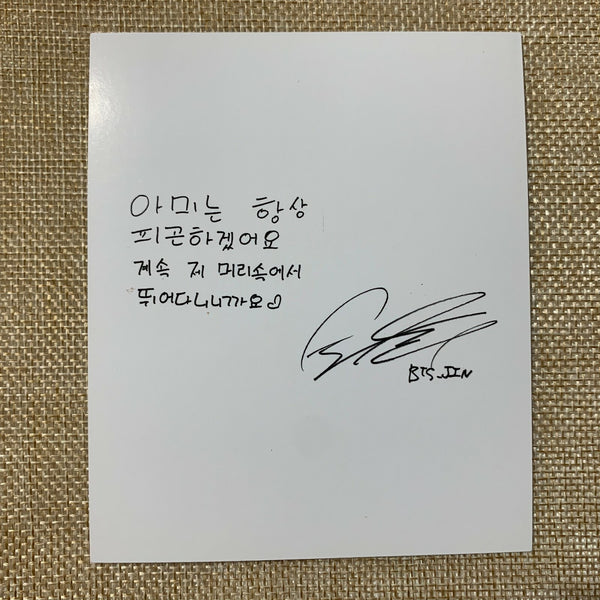 아미는 항상
피곤하겠어요
계속 제 머리속에서
뛰어다니니까요♡
BTS_JIN